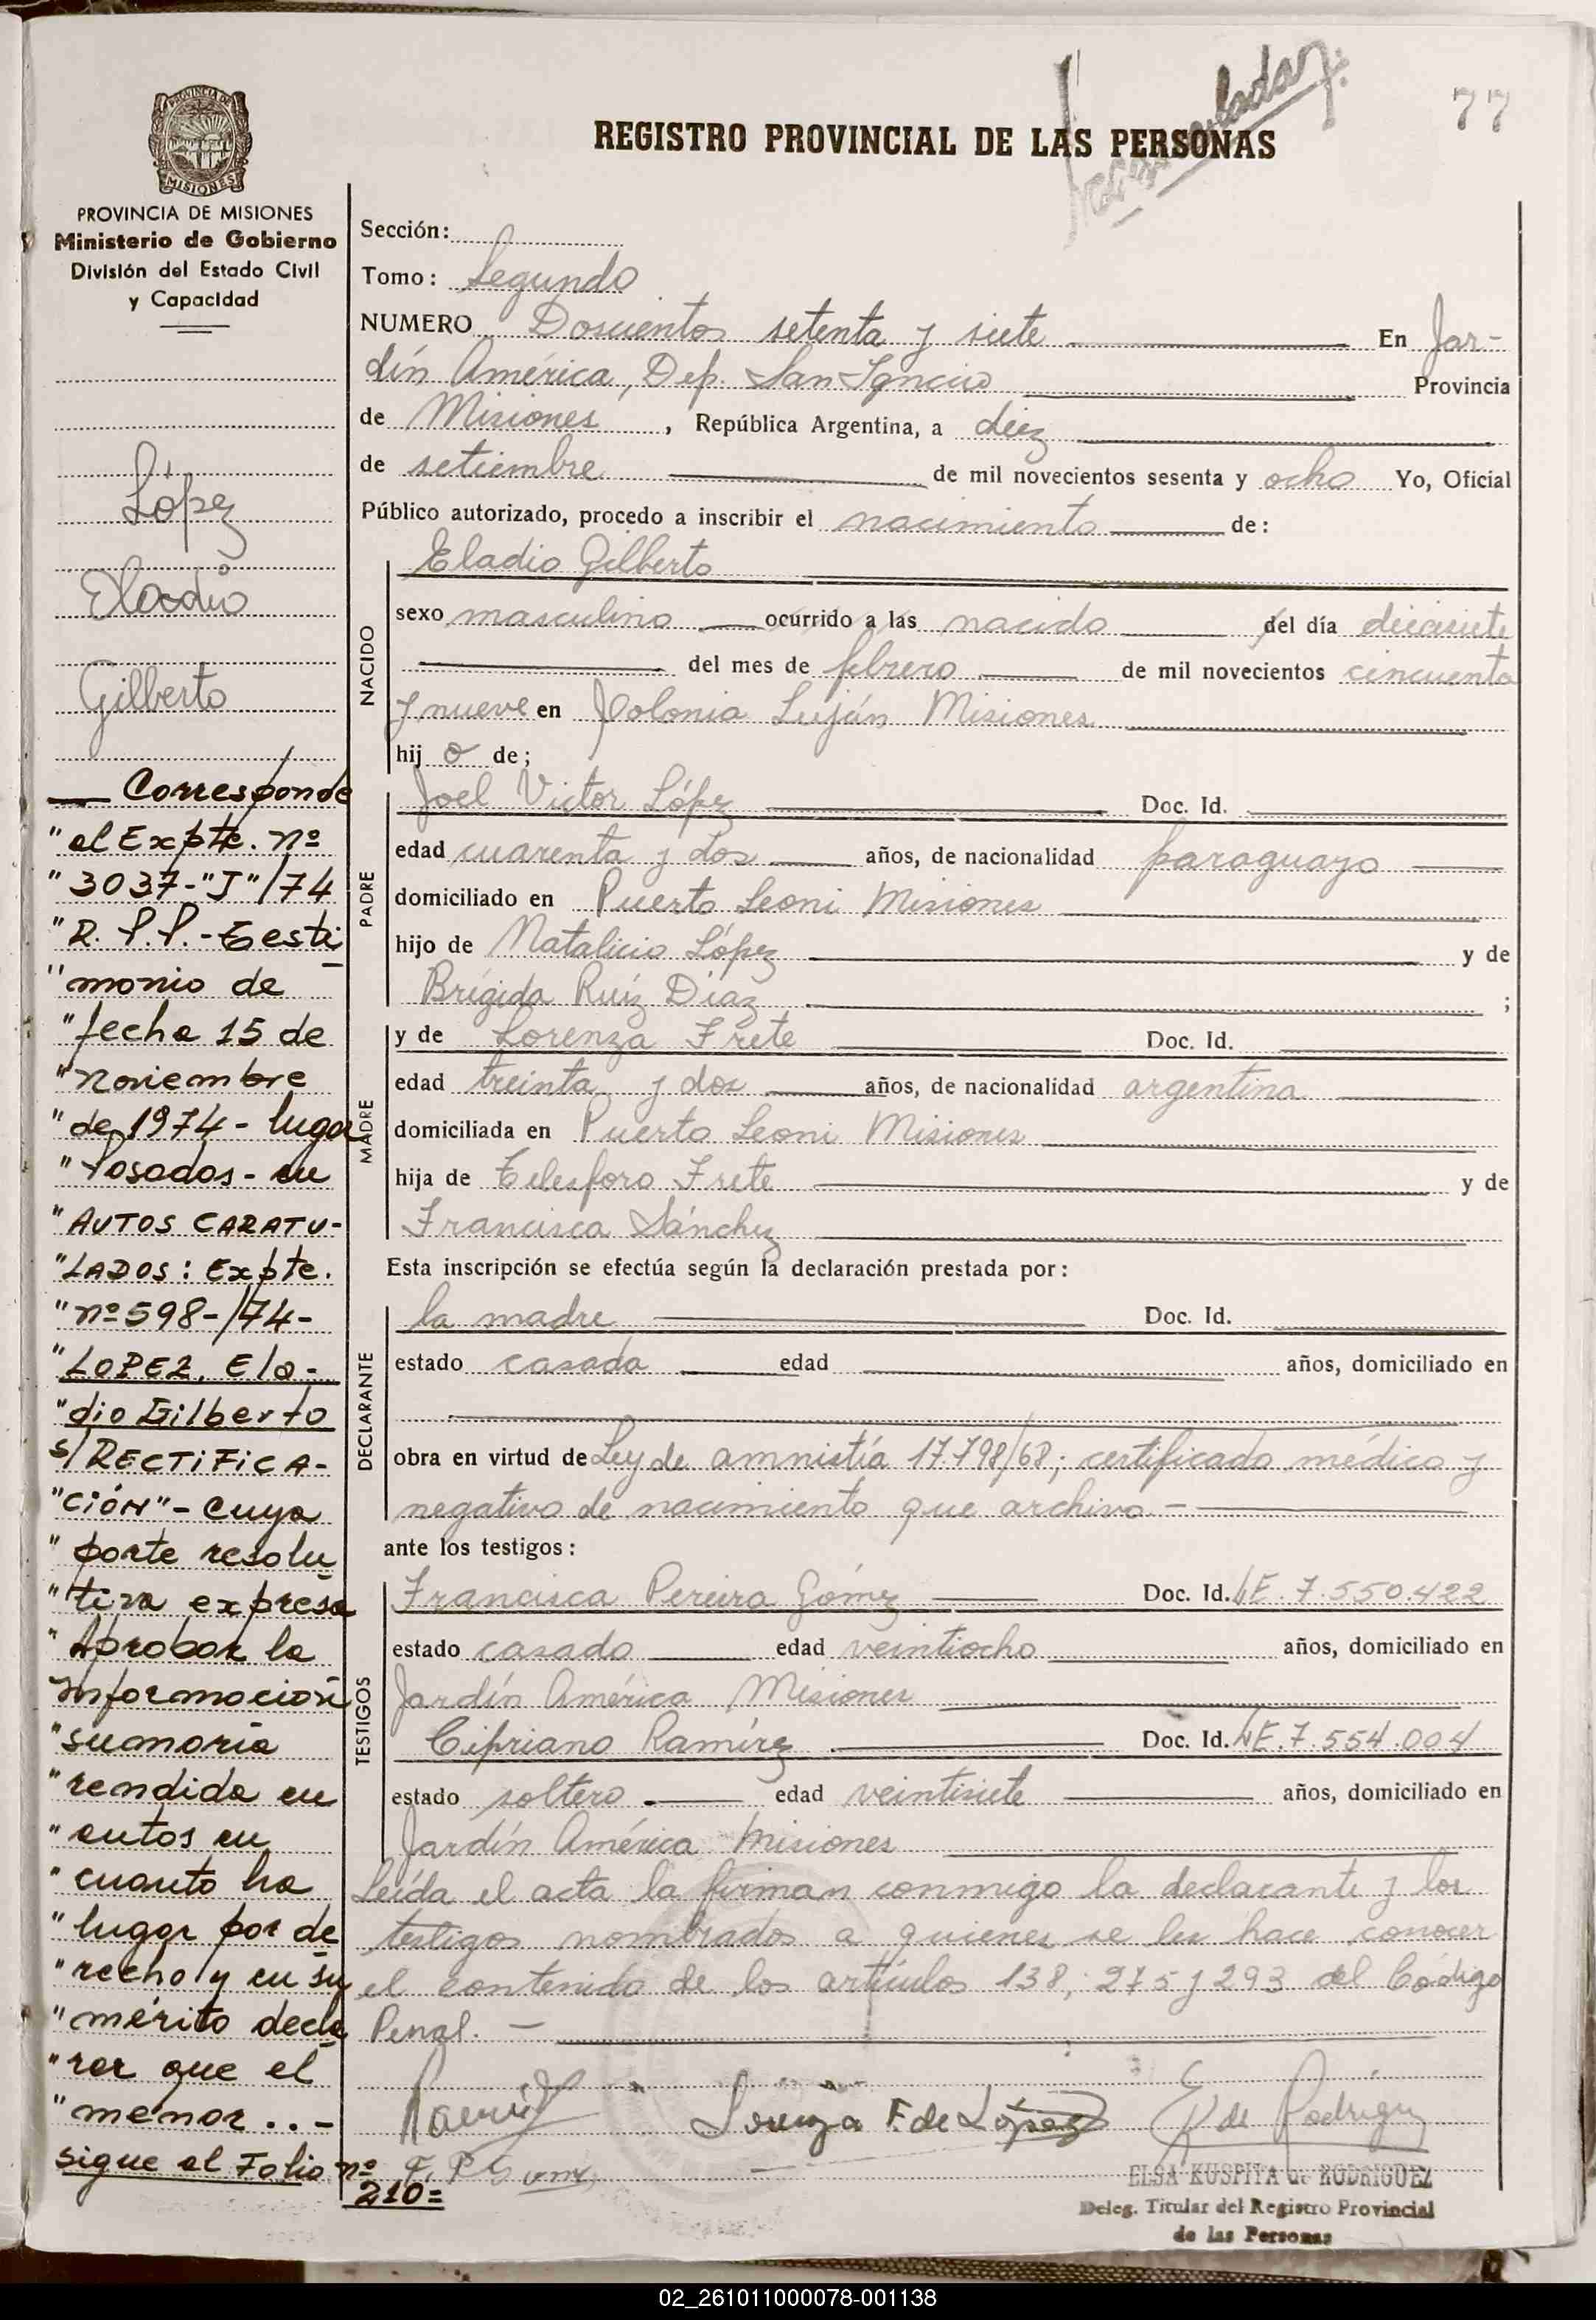 77
REGISTRO PROVINCIAL DE LAS PERSONAS
PROVINCIA DE MISIONES
Ministerio de Gobierno
División del Estado Civil
y Capacidad
Sección:
Tomo: Segundo
NUMERO Doscientos setenta y siete En Jar-
dín América, Dep. San Ignacio Provincia
de Misiones, República Argentina, a diez
de setiembre de mil novecientos sesenta y ocho Yo, Oficial
Público autorizado, procedo a inscribir el nacimiento de:
López
Eladio
Gilberto
NACIDO
Eladio Gilberto
sexo masculino ocurrido a las nacido del día diecisiete
del mes de febrero de mil novecientos cincuenta
y nueve en Colonia Luján Misiones
hij o de;
PADRE
Joel Victor López Doc. Id.
edad cuarenta y dos años, de nacionalidad paraguayo
domiciliado en Puerto Leoni Misiones
hijo de Natalicio López y de
Brígida Ruíz Díaz ;
MADRE
y de Lorenza Frete Doc. Id.
edad treinta y dos años, de nacionalidad argentina
domiciliada en Puerto Leoni Misiones
hija de Telesforo Frete y de
Francisca Sánchez
Esta inscripción se efectúa según la declaración prestada por:
DECLARANTE
la madre Doc. Id.
estado casada edad años, domiciliado en
obra en virtud de Ley de amnistía 17798/68; certificado médico y
negativo de nacimiento que archivo.-
ante los testigos:
TESTIGOS
Francisca Pereira Gómez Doc. Id. LE. 7.550.422
estado casado edad veintiocho años, domiciliado en
Jardín América Misiones
Cipriano Ramírez Doc. Id. LE. 7.554.004
estado soltero edad veintisiete años, domiciliado en
Jardín América Misiones
Leída el acta la firman conmigo la declarante y los
testigos nombrados a quienes se les hace conocer
el contenido de los artículos 138, 275 y 293 del Código
Penal.-
Lorenza F. de López
E K de Rodriguez
ELSA KUSPITA de RODRIGUEZ
Deleg. Titular del Registro Provincial
de las Personas
Corresponde
"al Expte. nº
"3037-"J"/74
"R. P.P.-Testi
"monio de
"fecha 15 de
"noviembre
"de 1974- lugar
"Posadas- en
"AUTOS CARATU-
"LADOS: Expte.
"nº 598-/74-
"LOPEZ, Ela-
"dio Gilberto
s/RECTIFICA-
"CIÓN"- cuya
"parte resolu
"tiva expresa
"Aprobar la
informacion
"sumaria
"rendida en
"autos en
"cuanto ha
"lugar por de
"recho y en su
"mérito decla
"rar que el
"menor..-
sigue al Folio nº
210=
02_261011000078-001138